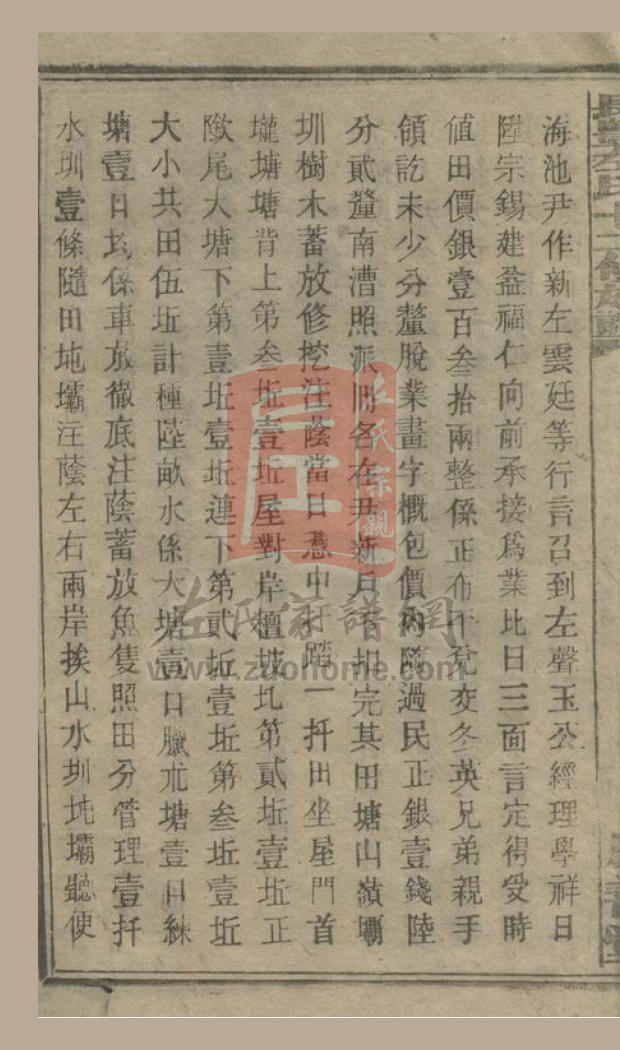 海池尹作新左雲廷等行言召到左聲玉公經理學祥日
陞宗錫建益福仁向前承接爲業比日三面言定得受時
值田價銀壹百叁拾兩整係正布平兌交冬英兄弟親手
領訖未少分釐脫業畫字概包價內隨過民正銀壹錢陸
分貳釐南漕照派冊各在尹新戶下扣完其田塘山嶺壩
圳樹木蓄放修挖注蔭當日憑中扦踏一扦田坐屋門首
壠塘塘背上第叁坵壹坵屋對岸檀坡坵第貳坵壹坵正
陂尾大塘下第壹坵壹坵連下第貳坵壹坵第叁坵壹坵
大小共田伍坵計種陸畝水係大塘壹口臘朮塘壹口練
塘壹口均係車放徹底注蔭蓄放魚隻照田分管理壹扦
水圳壹條隨田地壩注蔭左右兩岸挨山水圳地壩聽便
左氏宗親
左氏家譜網
www.zuohome.com